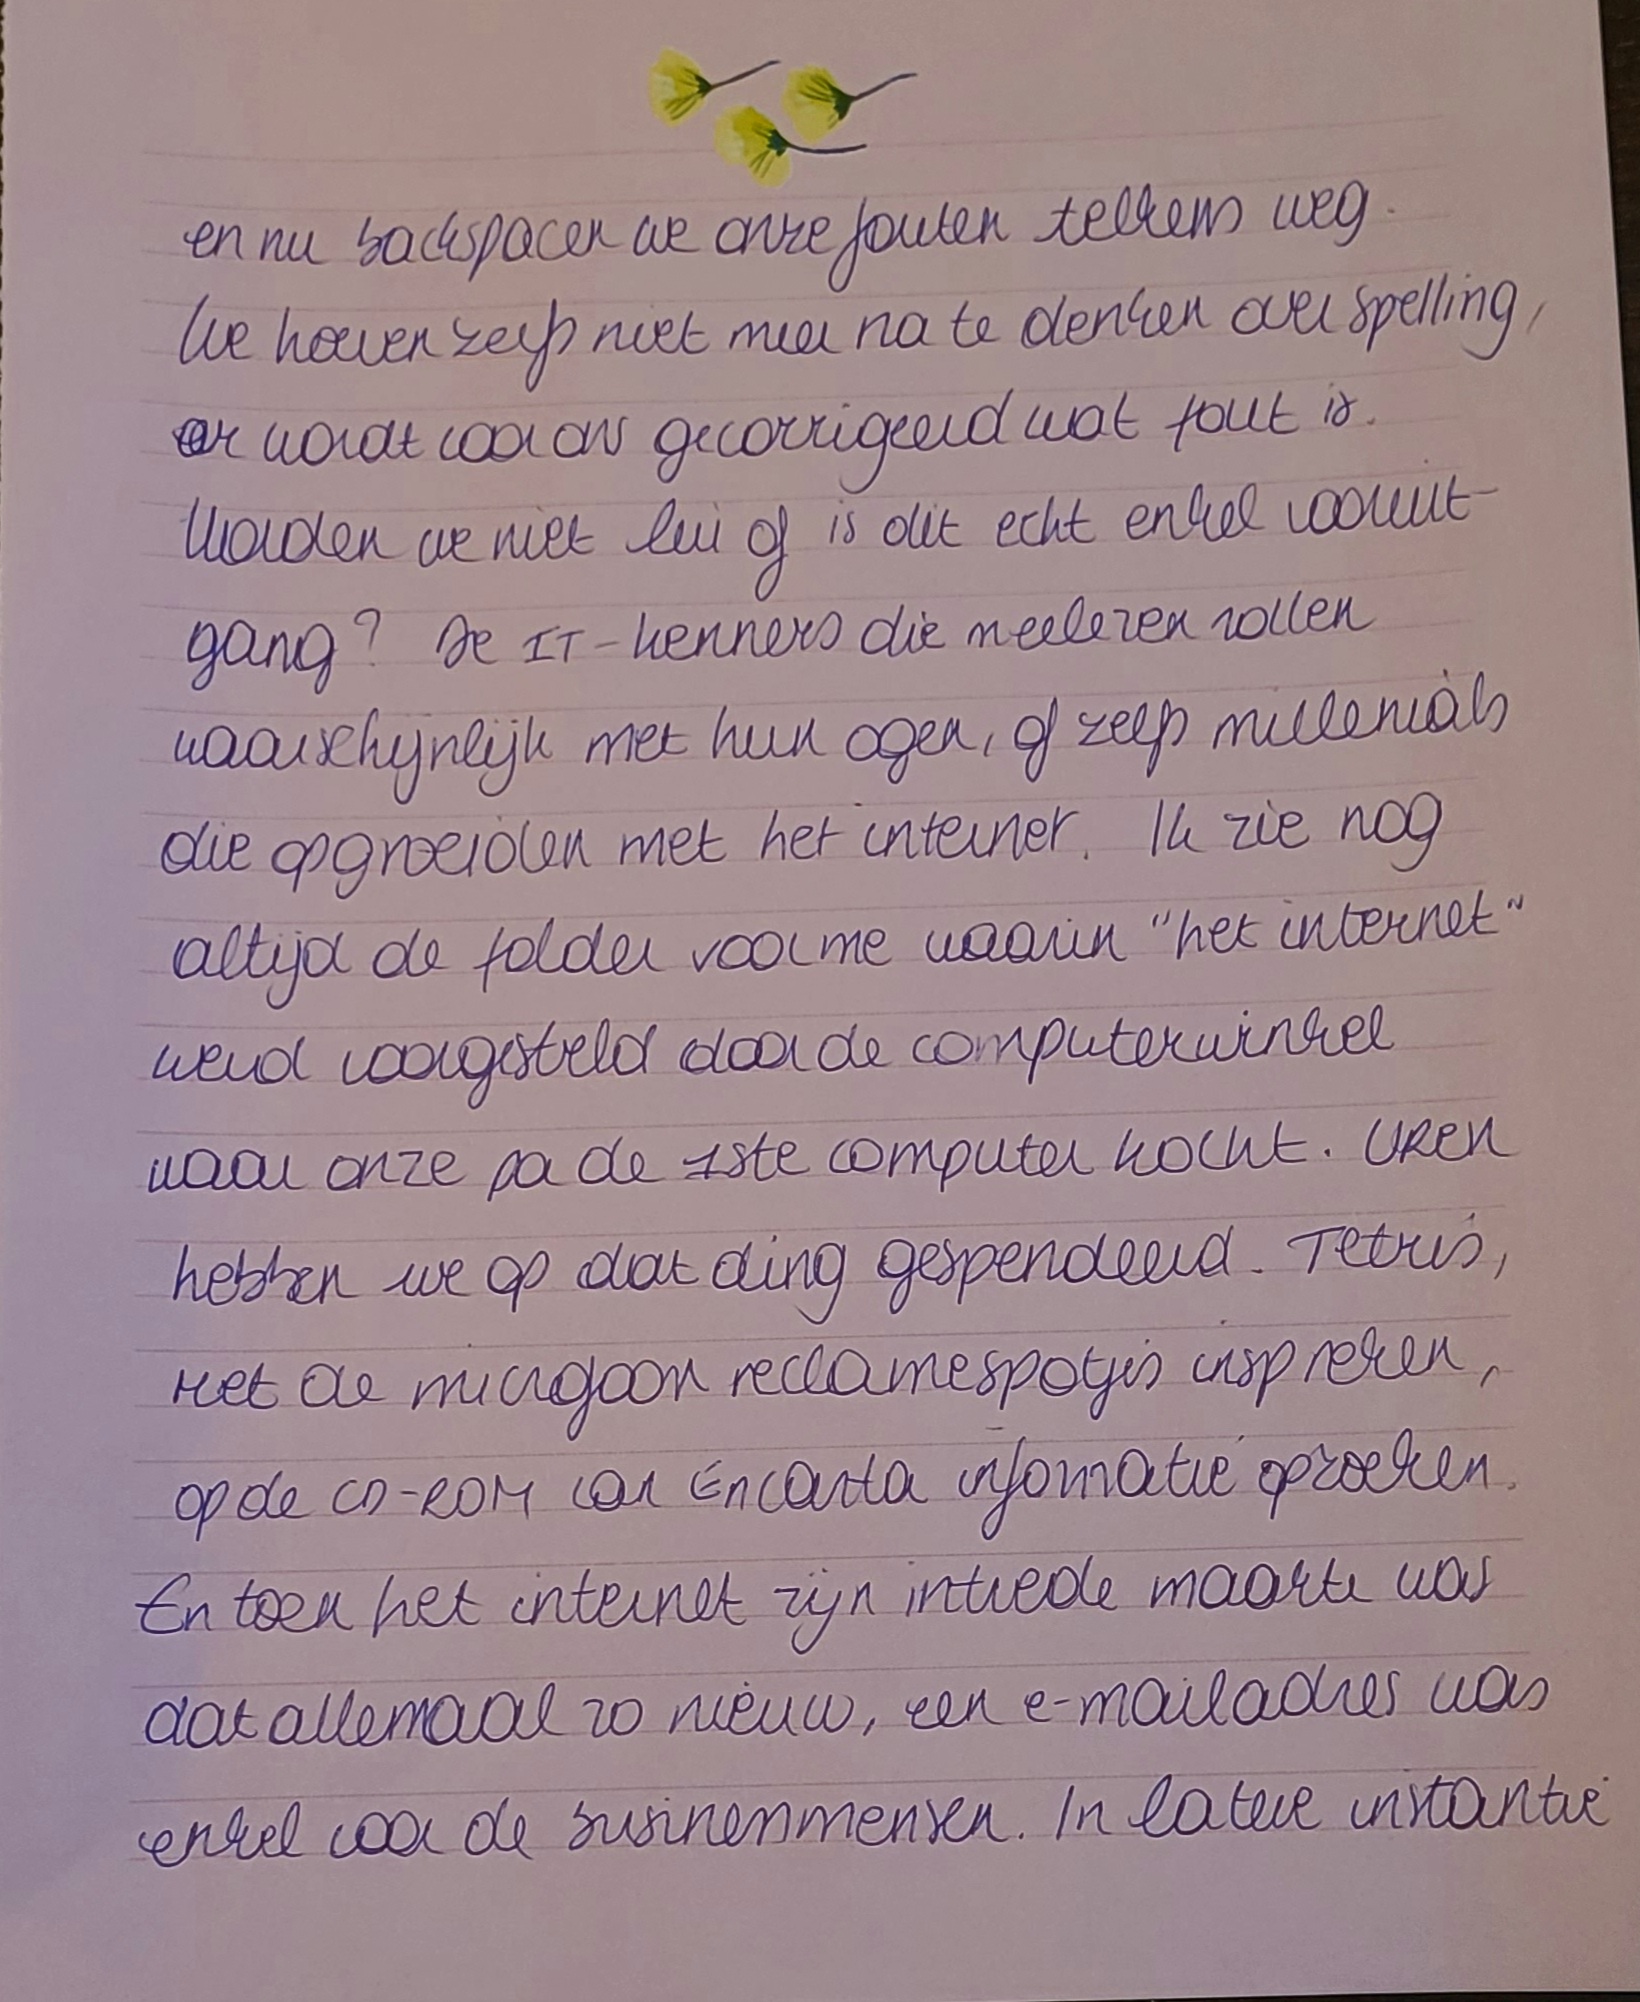 en nu backspacen we onze fouten telkens weg.
We hoeven zelfs niet meer na te denken over spelling,
er wordt voor ons gecorrigeerd wat fout is.
Worden we niet lui of is dit echt enkel vooruit-
gang? De IT-kenners die meelezen rollen
waarschijnlijk met hun ogen, of zelfs millenials
die opgroeiden met het internet. Ik zie nog
altijd de folder voor me waarin "het internet"
werd voorgesteld door de computerwinkel
waar onze pa de 1ste computer kocht. UREN
hebben we op dat ding gespendeerd. Tetris,
Met de microfoon reclamespotjes inspreken,
op de CD-ROM van Encarta informatie opzoeken.
En toen het internet zijn intrede maakte was
dat allemaal zo nieuw, een e-mailadres was
enkel voor de businessmensen. In latere instantie